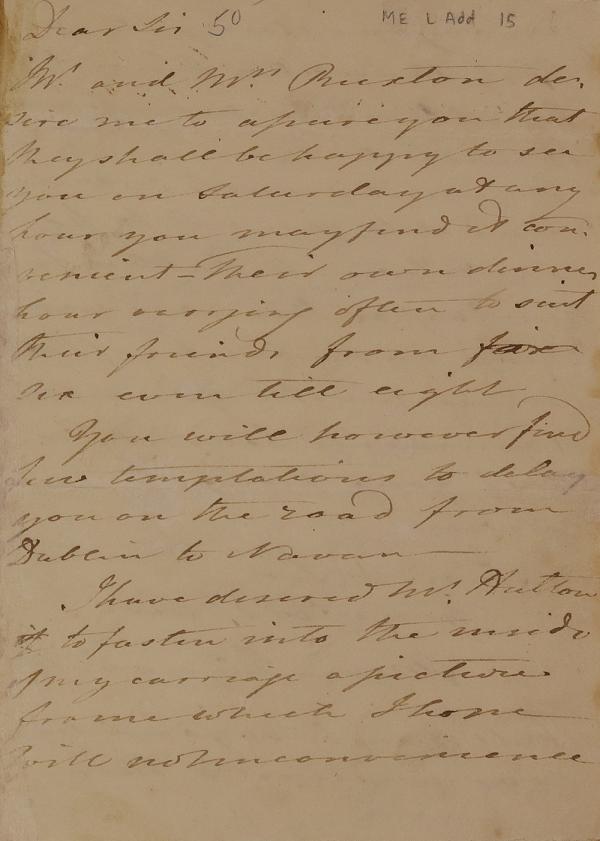 Dear Sir 50 ME L Add 15
Mr. and Mrs Ruxton de-
sire me to assure you that
they shall be happy to see
you on Saturday at any
hour you may find it con-
venient - Their own dinner
hour varying often to suit
their friends from
six even till eight
You will however find
few temptations to delay
you on the road from
Dublin to Navan
I have desired Mr. Hutton
to fasten into the inside
of my carriage a picture
frame which I hope
will not inconvenience